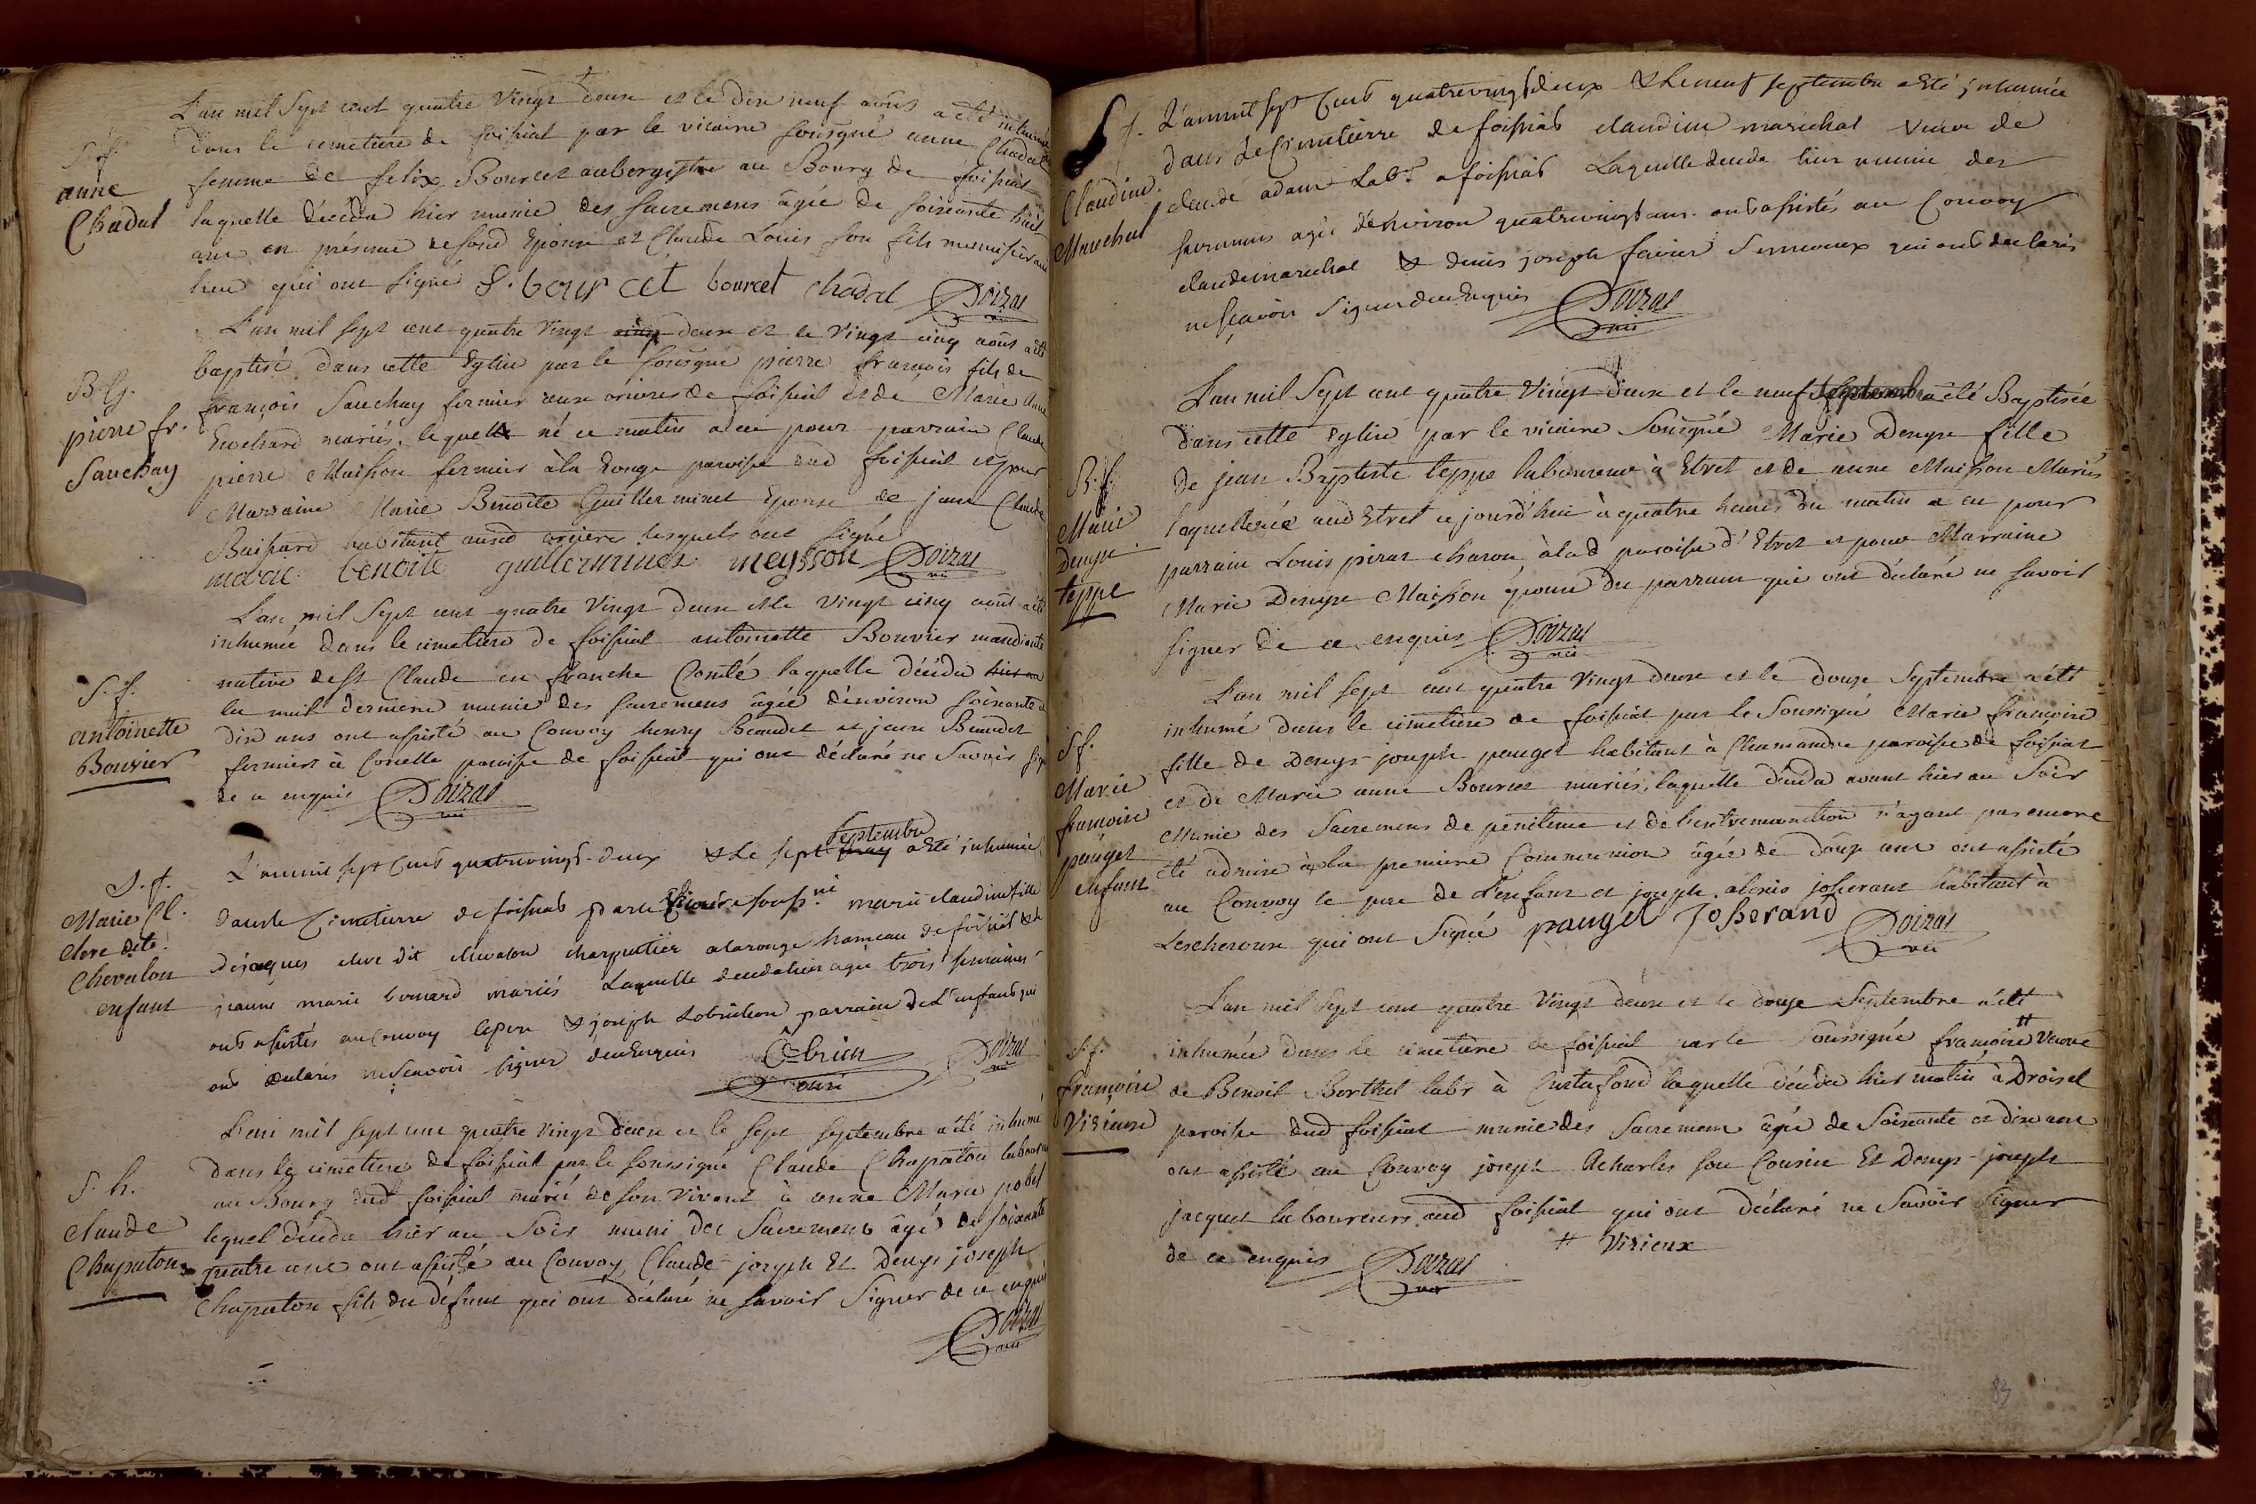 L'an mil Sept cent quatre Vingt deux et le dix neuf août a été inhumée
S. f. dans le cimetière de foissiat par le vicaire sousigné anne Chadal
anne femme de felix Bourcet aubergiste au Bourg de foissiat
Chadal laquelle décéda hier munie des sacremens âgée de soixante huit
ans en présence de son Epoux et Claude Louis son fils
lieu qui ont signé f. bourcet bourcet chadal Poizat vic
L'an mil sept cent quatre Vingt deux et le Vingt cinq août a été
baptisé dans cette Eglise par le sousigné pierre françois fils de
B. G. françois Sauchay fermier aux orieres de foissiat et de Marie anne
pierre fr. mariés, lequel né ce matin a eu pour parrain Claude
Sauchay pierre Maisson fermier à la Rouge paroisse dud foissiat et pour
Marraine Marie Benoîte Guillerminet Epouse de jean Claude
habitant aussd orieres lesquels ont signé
marie benoite guillerminet meysson Poizat vic
L'an mil Sept cent quatre Vingt deux et le Vingt cinq août a été
inhumée dans le cimetière de foissiat antoinette Bouvier mandiante
S. f. native de St Claude en franche Comté laquelle décéda
antoinette la nuit dernière munie des sacremens âgée d'environ soixante
Bouvier dix ans ont assisté au Convoy henry Beaudet et jean Beaudet
fermiers à Cornelle paroisse de foissiat qui ont déclaré ne Savoir signer
de ce enquis Poizat vic
septembre
L'an mil sept cents quatrevingt-deux & Le sept a Eté inhumée
S. f. dans le Cimetierre de foissiat par le vicaire soussné marie claudine fille
Marie Cl. De jaques clere dit chevalon charpentier a la rouge hameau de foissiat & de
Clere dite jeanne marie bernard mariés Laquelle decedat hier agée trois semaines
Chevalon ont assistés au Convoy le pere & joseph Lobrichon parrain de L'enfant qui
enfant ont declarés ne Sçavoir signer de ce Enquis Obrien curé Poizat vic
L'an mil sept cent quatre vingt deux et le sept septembre a été inhumé
dans le cimetière de foissiat par le soussigné Claude Chapaton laboureur
S. h. au Bourg dud foissiat marié de son Vivant à anne Marie pobel
claude lequel décéda hier au Soir muni des Sacremens âgé de soixante
Chapaton quatre ans ont assisté au Convoy Claude joseph Et Denys joseph
Chapaton fils du défunt qui ont déclaré ne savoir Signer de ce enquis
Poizat vic
S. f. L'an mil sept Cents quatrevingt deux & Le neuf septembre a Eté inhumée
dans Le Cimetierre de foissiat claudine marechal veuve de
Claudine claude adam Labr. a foissiat Laquelle deceda hier munie des
Marechal sacremens agée d'environ quatrevingt ans. ont assistés au Convoy
claude marechal & denis joseph favier Semeaux qui ont declarés
ne sçavoir Signer de ce Enquis Poizat vic
L'an mil Sept cent quatre Vingt deux et le neuf septembre a été Baptisée
dans cette Eglise par le vicaire sousigné Marie Denyse fille
B. f. de jean Baptiste teppe laboureur à Etret et de anne Maisson Mariés
Marie laquelle née aud Etret ce jourd'hui à quatre heures du matin a eu pour
Denyse parrain Louis pirat charon à lad paroisse d'Etret et pour Marraine
teppe Marie Denyse Maisson épouse du parrain qui ont déclaré ne savoir
signer de ce enquis Poizat vic
L'an mil sept cent quatre Vingt deux et le douze Septembre a été
S. f. inhumé dans le cimetière de foissiat par le Soussigné Marie françoise
Marie fille de Denys joseph pauget habitant à Chamandre paroisse de foissiat
françoise et de Marie anne Bourcet mariés, laquelle décéda avant hier au Soir
pauget Munie des Sacremens de penitence et de l'extremonction n'ayant pas encore
enfant été admise à la premiere Communion âgée de douze ans ont assisté
au Convoy le pere de l'enfant et joseph alexis josserant habitant à
Lescheroux qui ont Signé pauget Josserand Poizat vic
L'an mil Sept cent quatre Vingt deux et le douze Septembre a été
S. f. inhumée dans le cimetière de foissiat par le Soussigné françoise # Veuve
françoise de Benoit Berthet labr à Curtafond laquelle décéda hier matin à Droisel
Virieux paroisse dud foissiat munie des Sacremens âgée de Soixante et dix ans
ont assisté au Convoy joseph Acharles son Cousin Et Denys joseph
jacquet laboureurs aud foissiat qui ont déclaré ne Savoir Signer
de ce enquis Poizat vic # Virieux
83